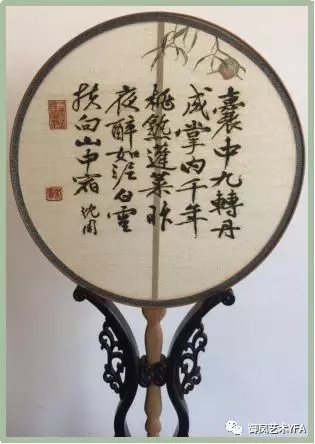 囊中九轉丹
成掌内千年
桃熟蓬萊昨
夜醉如泥白雲
扶向山中宿 沈周
御凤艺术YFA